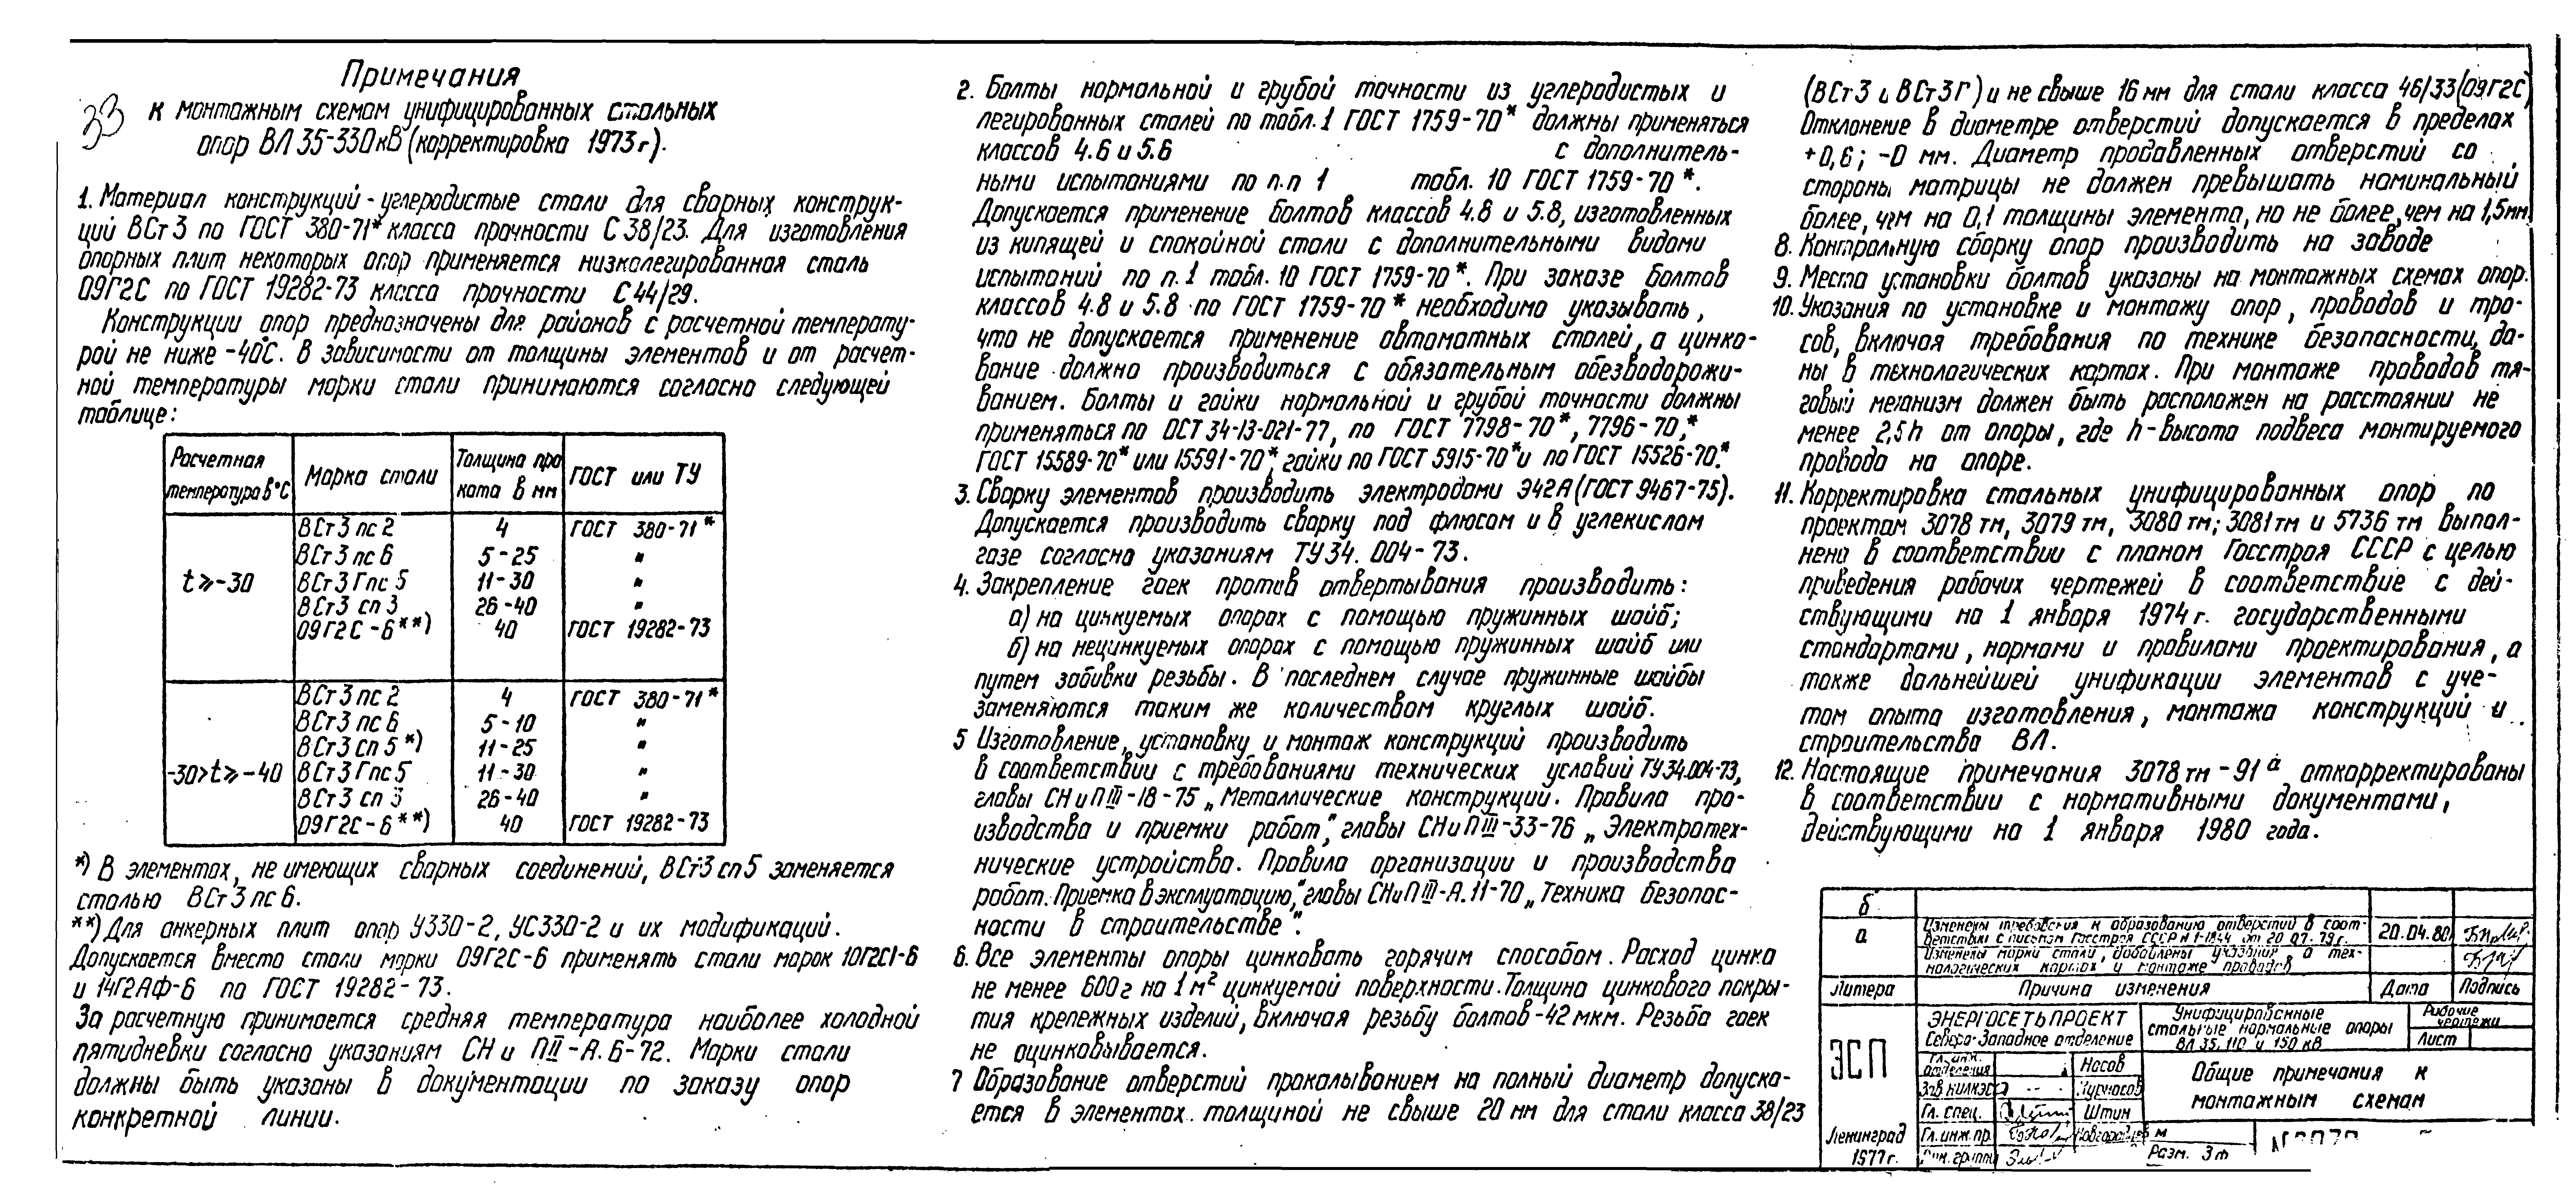 Примечания
к монтажным схемам унифицированных стальных
опор ВЛ 35-330кВ (корректировка 1973г).
33
1. Материал конструкций - углеродистые стали для сварных конструк-
ций ВСт3 по ГОСТ 380-71* класса прочности С 38/23. Для изготовления
опорных плит некоторых опор применяется низколегированная сталь
09Г2С по ГОСТ 19282-73 класса прочности С44/29.
Конструкции опор предназначены для районов с расчетной температу-
рой не ниже -40°С. В зависимости от толщины элементов и от расчет-
ной температуры марки стали принимаются согласно следующей
таблице:
Расчетная температура в °С | Марка стали | Толщина про ката в мм | ГОСТ или ТУ
t⩾-30 | ВСт3 пс 2 | 4 | ГОСТ 380-71*
ВСт3 пс 6 | 5-25 | "
ВСт3 Гпс 5 | 11-30 | "
ВСт3 сп 3 | 26-40 | "
09Г2С-6**) | 40 | ГОСТ 19282-73
-30>t⩾-40 | ВСт3 пс 2 | 4 | ГОСТ 380-71*
ВСт3 пс 6 | 5-10 | "
ВСт3 сп 5*) | 11-25 | "
ВСт3 Гпс 5 | 11-30 | "
ВСт3 сп 3 | 26-40 | "
09Г2С-6**) | 40 | ГОСТ 19282-73
*) В элементах, не имеющих сварных соединений, ВСт3 сп5 заменяется
сталью ВСт3 пс 6.
**) Для анкерных плит опор У330-2, УС330-2 и их модификаций.
Допускается вместо стали марки 09Г2С-6 применять стали марок 10Г2С1-6
и 14Г2АФ-6 по ГОСТ 19282-73.
За расчетную принимается средняя температура наиболее холодной
пятидневки согласно указаниям СН и П II-А.6-72. Марки стали
должны быть указаны в документации по заказу опор
конкретной линии.
2. Болты нормальной и грубой точности из углеродистых и
легированных сталей по табл.1 ГОСТ 1759-70* должны применяться
классов 4.6 и 5.6 с дополнитель-
ными испытаниями по п.п 1 табл. 10 ГОСТ 1759-70*.
Допускается применение болтов классов 4.8 и 5.8, изготовленных
из кипящей и спокойной стали с дополнительными видами
испытаний по п.1 табл. 10 ГОСТ 1759-70*. При заказе болтов
классов 4.8 и 5.8 по ГОСТ 1759-70* необходимо указывать,
что не допускается применение автоматных сталей, а цинко-
вание должно производиться с обязательным обезводорожи-
ванием. Болты и гайки нормальной и грубой точности должны
применяться по ОСТ 34-13-021-77, по ГОСТ 7798-70*, 7796-70,*
ГОСТ 15589-70* или 15591-70*, гайки по ГОСТ 5915-70* и по ГОСТ 15526-70.*
3. Сварку элементов производить электродами Э42А (ГОСТ 9467-75).
Допускается производить сварку под флюсом и в углекислом
газе согласно указаниям ТУ34. 004-73.
4. Закрепление гаек против отвертывания производить:
а) на цинкуемых опорах с помощью пружинных шайб;
б) на нецинкуемых опорах с помощью пружинных шайб или
путем забивки резьбы. В последнем случае пружинные шайбы
заменяются таким же количеством круглых шайб.
5 Изготовление, установку и монтаж конструкций производить
в соответствии с требованиями технических условий ТУ34.004-73,
главы СН и П III-18-75 „Металлические конструкции. Правила про-
изводства и приемки работ", главы СН и П III-33-76 „Электротех-
нические устройства. Правила организации и производства
работ. Приемка в эксплуатацию," главы СН и П III-А.11-70 „Техника безопас-
ности в строительстве".
6. Все элементы опоры цинковать горячим способом. Расход цинка
не менее 600г на 1м² цинкуемой поверхности. Толщина цинкового покры-
тия крепежных изделий, включая резьбу болтов-42 мкм. Резьба гаек
не оцинковывается.
7 Образование отверстий прокалыванием на полный диаметр допуска-
ется в элементах толщиной не свыше 20 мм для стали класса 38/23
(ВСт3 и ВСт3Г) и не свыше 16 мм для стали класса 46/33 (09Г2С)
Отклонение в диаметре отверстий допускается в пределах
+0,6; -0 мм. Диаметр продавленных отверстий со
стороны матрицы не должен превышать номинальный
более, чем на 0,1 толщины элемента, но не более, чем на 1,5мм.
8. Контрольную сборку опор производить на заводе
9. Места установки болтов указаны на монтажных схемах опор.
10. Указания по установке и монтажу опор, проводов и тро-
сов, включая требования по технике безопасности, да-
ны в технологических картах. При монтаже проводов тя-
говый механизм должен быть расположен на расстоянии не
менее 2,5h от опоры, где h-высота подвеса монтируемого
провода на опоре.
11. Корректировка стальных унифицированных опор по
проектам 3078 тм, 3079 тм, 3080 тм; 3081тм и 5736 тм выпол-
нена в соответствии с планом Госстроя СССР с целью
приведения рабочих чертежей в соответствие с дей-
ствующими на 1 января 1974г. государственными
стандартами, нормами и правилами проектирования, а
также дальнейшей унификации элементов с уче-
том опыта изготовления, монтажа конструкций и
строительства ВЛ.
12. Настоящие примечания 3078тм-91а откорректированы
в соответствии с нормативными документами,
действующими на 1 января 1980 года.
б
а | Изменены требования к образованию отверстий в соот-
ветствии с письмом Госстроя СССР | 20.04.80
Изменены марки стали, добавлены указания о тех-
нологических картах и монтаже проводов
Литера | Причина изменения | Дата | Подпись
ЭСП
Ленинград
1977г.
ЭНЕРГОСЕТЬПРОЕКТ
Северо-Западное отделение
Унифицированные
стальные нормальные опоры
ВЛ 35, 110 и 150 кВ
Рабочие
чертежи
Лист
Гл. инж.
отделения | Носов
Гл. спец. | Штин
Гл. инж. пр.
Общие примечания к
монтажным схемам
Разм. 3ф